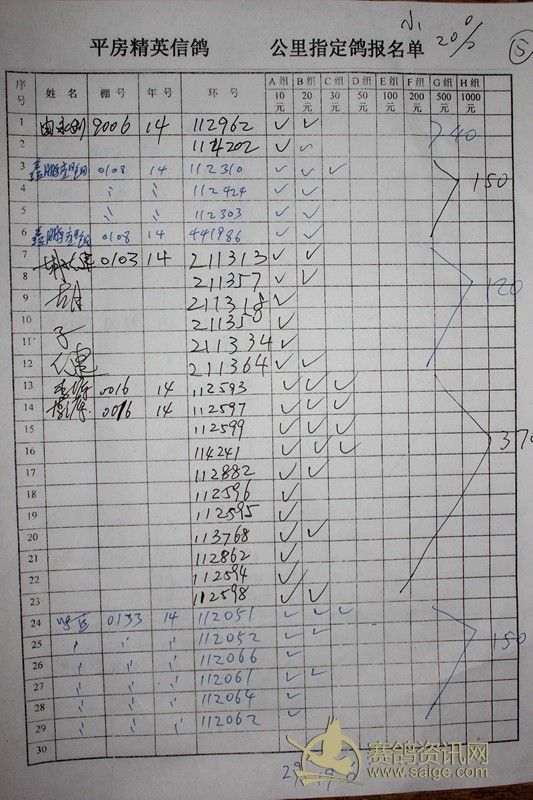 20%
5
平房精英信鸽 公里指定鸽报名单
序号 姓名 棚号 年号 环号 A组 B组 C组 D组 E组 F组 G组 H组
10元 20元 30元 50元 100元 200元 500元 1000元
1 9006 14 112962 ✓ ✓ 40
2 114202 ✓ ✓
3 0108 14 112310 ✓ ✓ ✓ 150
4 〃 〃 112424 ✓ ✓
5 〃 〃 112303 ✓ ✓
6 0108 14 441986 ✓ ✓
7 0103 14 211313 ✓ ✓
8 211357 ✓ ✓ 120
9 211318 ✓
10 211350 ✓
11 子 211334 ✓
12 211364 ✓ ✓
13 0016 14 112593 ✓ ✓ ✓
14 0016 14 112597 ✓ ✓ ✓
15 112599 ✓ ✓ ✓
16 114241 ✓ ✓ ✓ 370
17 112882 ✓ ✓
18 112596 ✓
19 112595 ✓
20 113768 ✓ ✓
21 112862 ✓
22 112594 ✓
23 112598 ✓ ✓
24 0133 14 112051 ✓ ✓ ✓
25 〃 〃 〃 112052 ✓ ✓ 150
26 〃 〃 〃 112066 ✓
27 〃 〃 〃 112061 ✓ ✓
28 〃 〃 〃 112064 ✓
29 〃 〃 〃 112062 ✓
30
赛鸽资讯网
www.saige.com